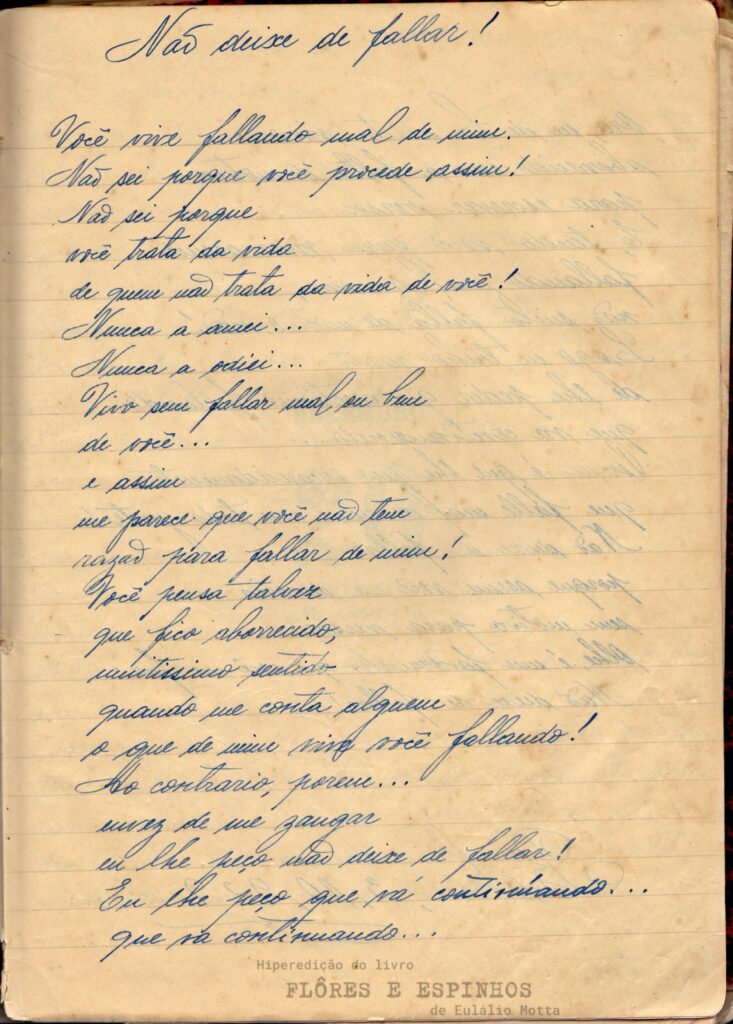 Não deixe de fallar!
Você vive fallando mal de mim.
Não sei porque você procede assim!
Não sei porque
você trata da vida
de quem não trata da vida de você!
Nunca á amei...
Nunca a odiei...
Vivo sem fallar mal ou bem
de você...
e assim
me parece que você não tem
razão para fallar de mim!
Você pensa talvez
que fico aborrecido,
muitissimo sentido
quando me conta alguem
o que de mim vive você fallando!
Ao contrario, porem...
envez de me zangar
eu lhe peço não deixe de fallar!
Eu lhe peço que vá continuando...
que va continuando...
Hiperedição do livro
FLÔRES E ESPINHOS
de Eulálio Motta